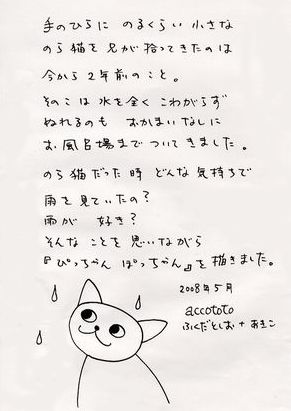 手のひらに のるくらい 小さな
のら猫を 兄が 拾ってきたのは
今から 2年前のこと。
そのこは 水を全く こわがらず
ぬれるのも おかまいなしに
お風呂場まで ついてきました。
のら猫だった時 どんな気持ちで
雨を見ていたの?
雨が 好き?
そんなことを思いながら
『ぴっちゃん ぱっちゃん』を描きました。
2008年5月
accototo
ふくだとしお + あきこ